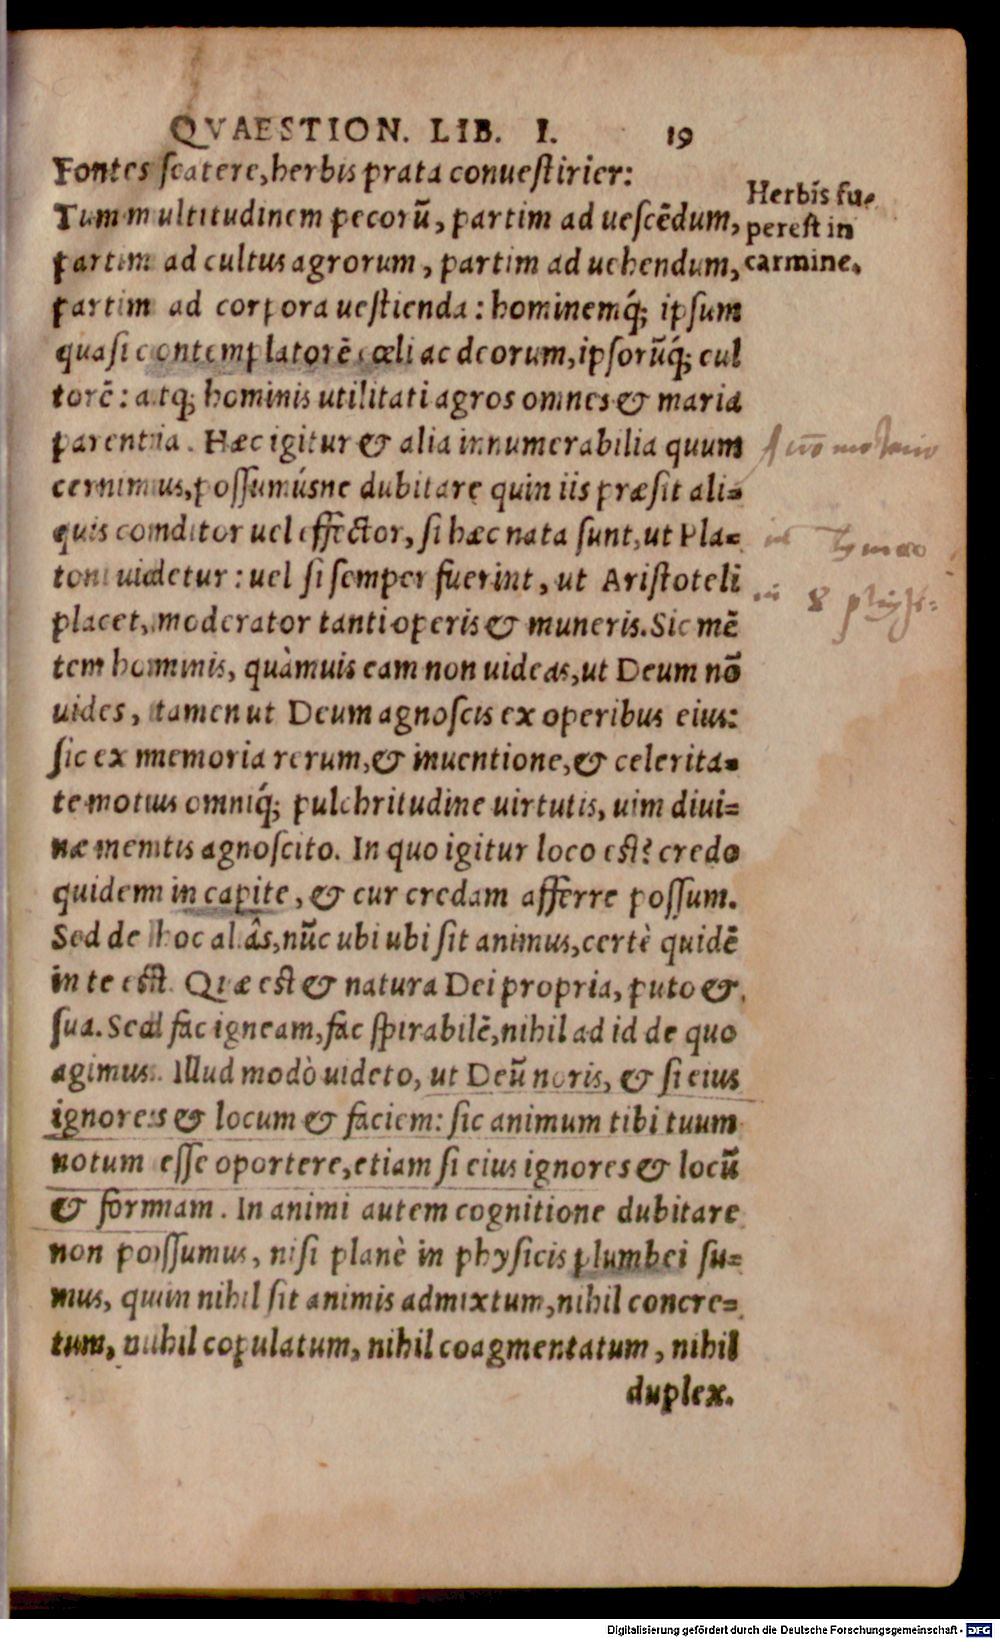 QVAESTION. LIB. I. 19
Fontes ſcatere, herbis prata conueſtirier:
Tum multitudinem pecorū, partim ad ueſcēdum,
partim ad cultus agrorum, partim ad uehendum,
partim ad corpora ueſtienda: hominemq́; ipſum
quaſi contemplatorē cœli ac deorum, ipſorūq́; cul
torē: atq; hominis utilitati agros omnes & maria
parentia. Hæc igitur & alia innumerabilia quum
cernimus, poſſumúsne dubitare quin iis præſit ali=
quis conditor uel effector, ſi hæc nata ſunt, ut Pla=
toni uidetur: uel ſi ſemper fuerint, ut Ariſtoteli
placet, moderator tanti operis & muneris. Sic mē
tem hominis, quàmuis eam non uideas, ut Deum nō
uides, tamen ut Deum agnoſcis ex operibus eius:
ſic ex memoria rerum, & inuentione, & celerita=
te motus omniq́; pulchritudine uirtutis, uim diui=
næ mentis agnoſcito. In quo igitur loco eſt? credo
quidem in capite, & cur credam afferre poſſum.
Sed de hoc aliâs, nūc ubi ubi ſit animus, certè quidē
in te eſt. Quæ eſt & natura Dei propria, puto &
ſua. Sed fac igneam, fac ſpirabilē, nihil ad id de quo
agimus. Illud modò uideto, ut Deū noris, & ſi eius
ignores & locum & faciem: ſic animum tibi tuum
notum eſſe oportere, etiam ſi eius ignores & locū
& formam. In animi autem cognitione dubitare
non poſſumus, niſi planè in phyſicis plumbei ſu=
mus, quin nihil ſit animis admixtum, nihil concre=
tum, nihil copulatum, nihil coagmentatum, nihil
duplex.
Herbis ſu=
pereſt in
carmine.
in 8 phyſi=
Digitalisierung gefördert durch die Deutsche Forschungsgemeinschaft - DFG